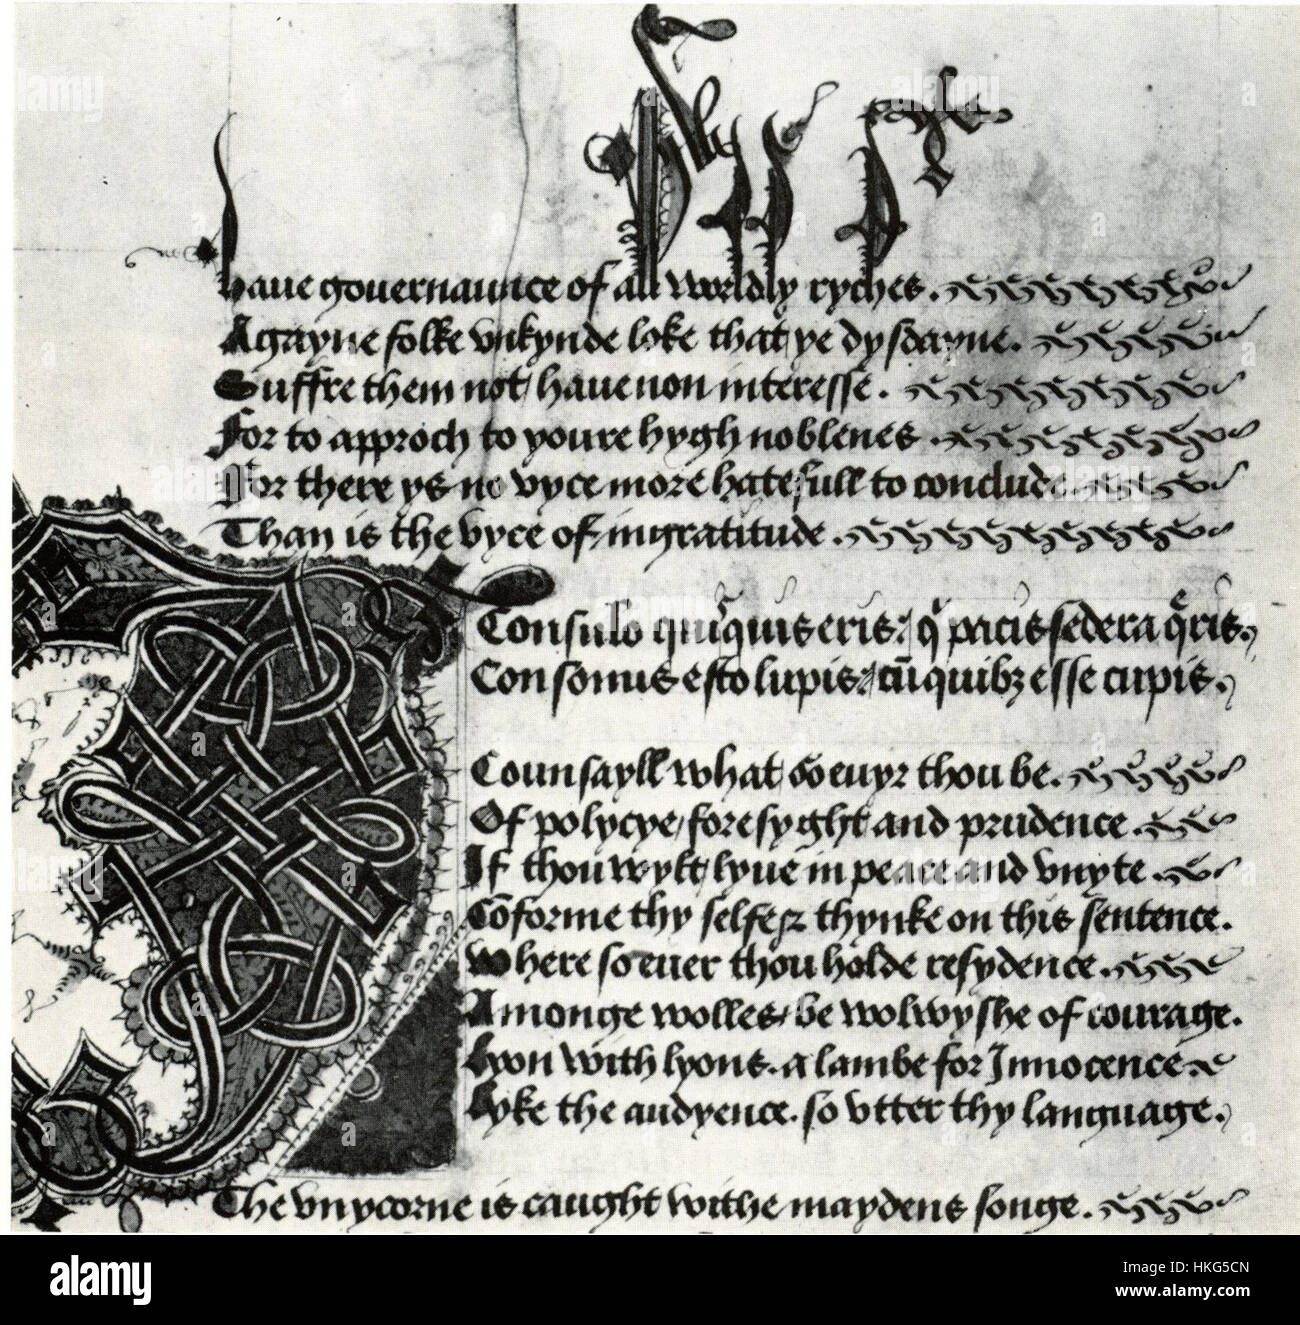 haue gouernaunce of all worldly ryches.
Agayne folke vnkynde loke that ye dysdayne.
Suffre them not / haue non interesse.
For to approch to youre hygh noblenes
For there ys no vyce more hatefull to conclude.
Than is the vyce of ingratitude.
Consulo quisquis eris / q pacis federa qris.
Consonus esto lupis / cū quibz esse cupis.
Counsayll what so euyr thou be.
Of polycye / foresyght and prudence.
If thou wylt lyue in peace and vnyte.
Cōforme thy selfe & thynke on this sentence.
Where so euer thou holde resydence.
Amonge wolles. be wolwyshe of courage.
Lyon with lyons. a lambe for Innocence.
Lyke the audyence. so vtter thy language.
The vnycorne is caught withe maydens songe.
alamy
Image ID: HKG5CN
www.alamy.com